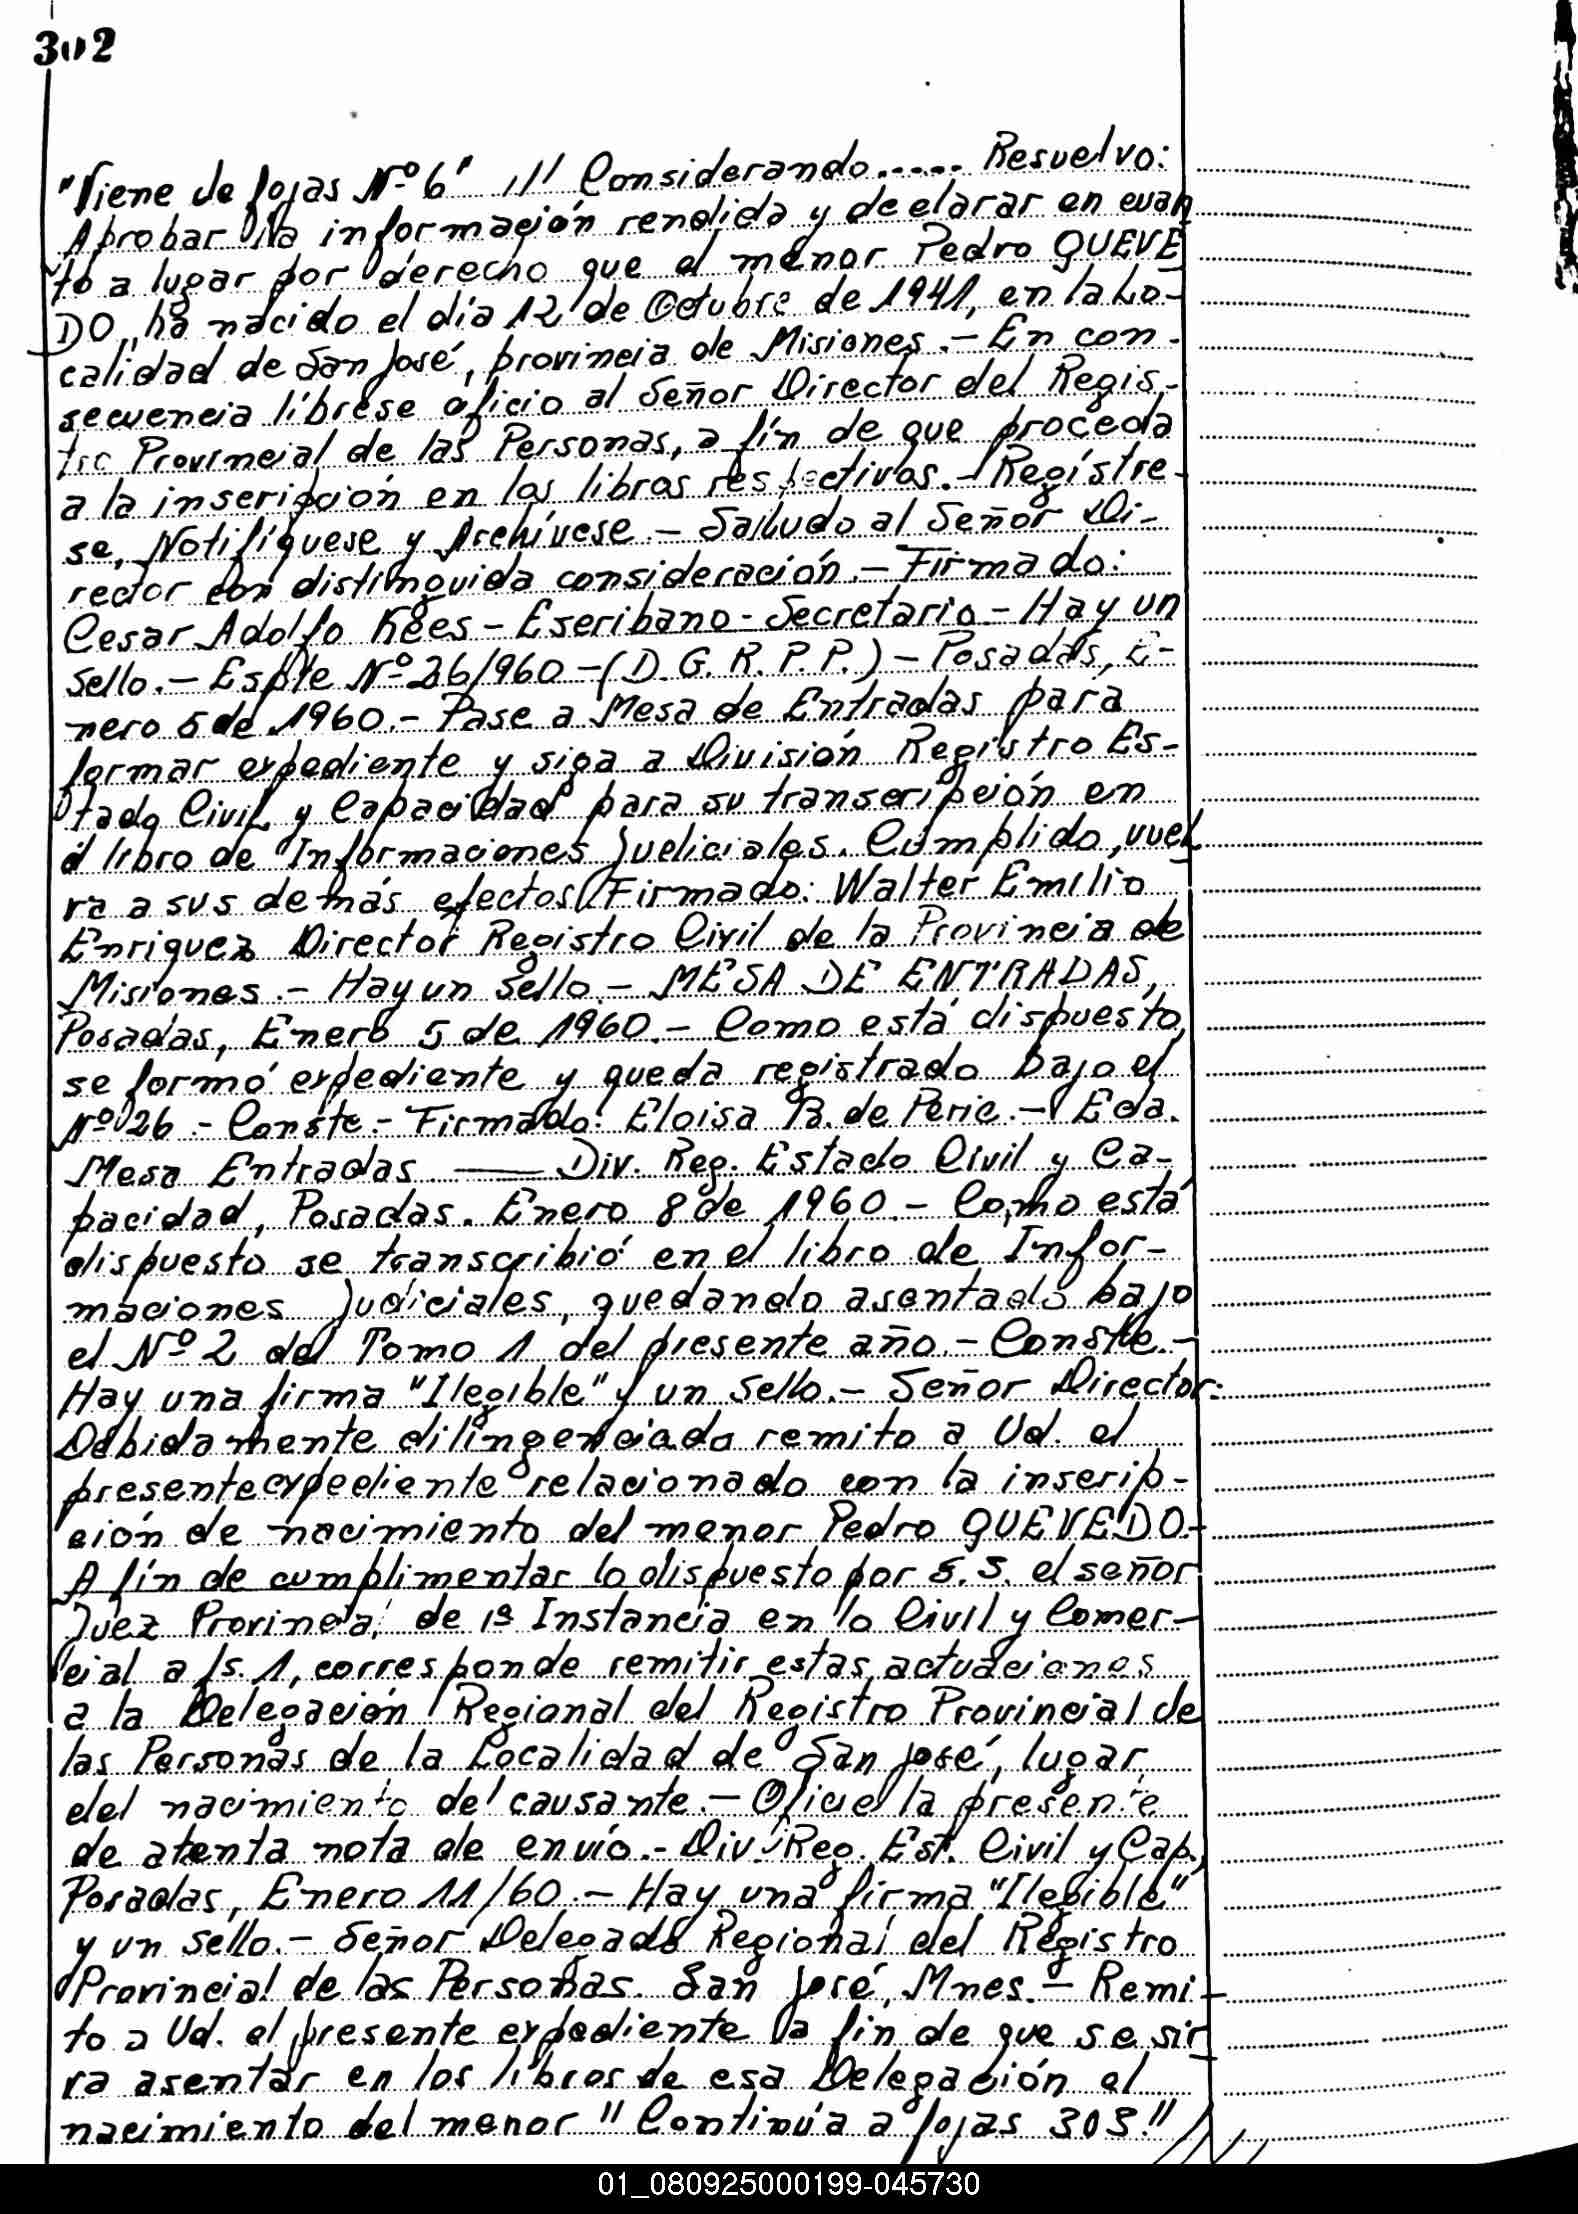 302
"Viene de fojas Nº 6" /// Considerando..... Resuelvo:
Aprobar la información rendida y declarar en cuan
to a lugar por derecho que el menor Pedro QUEVE
DO, ha nacido el día 12 de Octubre de 1941, en la Lo-
calidad de San José, provincia de Misiones.- En con-
secuencia líbrese oficio al Señor Director del Regis-
tro Provincial de las Personas, a fín de que proceda
a la inscripción en los libros respectivos.- Regístre-
se, Notifíquese y Archívese.- Saludo al Señor Di-
rector con distinguida consideración.- Firmado:
Cesar Adolfo Kees - Escribano - Secretario.- Hay un
sello.- Espte Nº 26/960 -(D. G. R. P. P.) - Posadas, E-
nero 5 de 1960.- Pase a Mesa de Entradas para
formar expediente y siga a División Registro Es-
tado Civil y Capacidad para su transcripción en
el libro de Informaciones Judiciales. Cumplido, vuel
va a sus demás efectos Firmado: Walter Emilio
Enriquez Director Registro Civil de la Provincia de
Misiones.- Hay un sello.- MESA DE ENTRADAS,
Posadas, Enero 5 de 1960.- Como está dispuesto,
se formó expediente y queda registrado bajo el
Nº 26.- Conste.- Firmado: Eloisa B. de Peric.- Ecda.
Mesa Entradas —— Div. Reg. Estado Civil y Ca-
pacidad, Posadas. Enero 8 de 1960.- Como está
dispuesto se transcribió en el libro de Infor-
maciones Judiciales, quedando asentado bajo
el Nº 2 del Tomo 1 del presente año.- Conste.-
Hay una firma "Ilegible" y un sello.- Señor Director:
Debidamente dilingenciado remito a Ud. el
presente expediente relacionado con la inscrip-
ción de nacimiento del menor Pedro QUEVEDO.-
A fín de cumplimentar lo dispuesto por S. S. el señor
Juez Provincial de 1ª Instancia en lo Civil y Comer-
cial a fs. 1, corresponde remitir estas actuaciones
a la Delegación Regional del Registro Provincial de
las Personas de la Localidad de San José, lugar
del nacimiento del causante.- Oficie la presente
de atenta nota de envío.- Div. Reg. Est. Civil y Cap.,
Posadas, Enero 11/60.- Hay una firma "Ilegible"
y un sello.- Señor Delegado Regional del Registro
Provincial de las Personas. San José, Mnes.- Remi-
to a Ud. el presente expediente a fin de que se sir
va asentar en los libros de esa Delegación el
nacimiento del menor "Continúa a fojas 303."
01_080925000199-045730